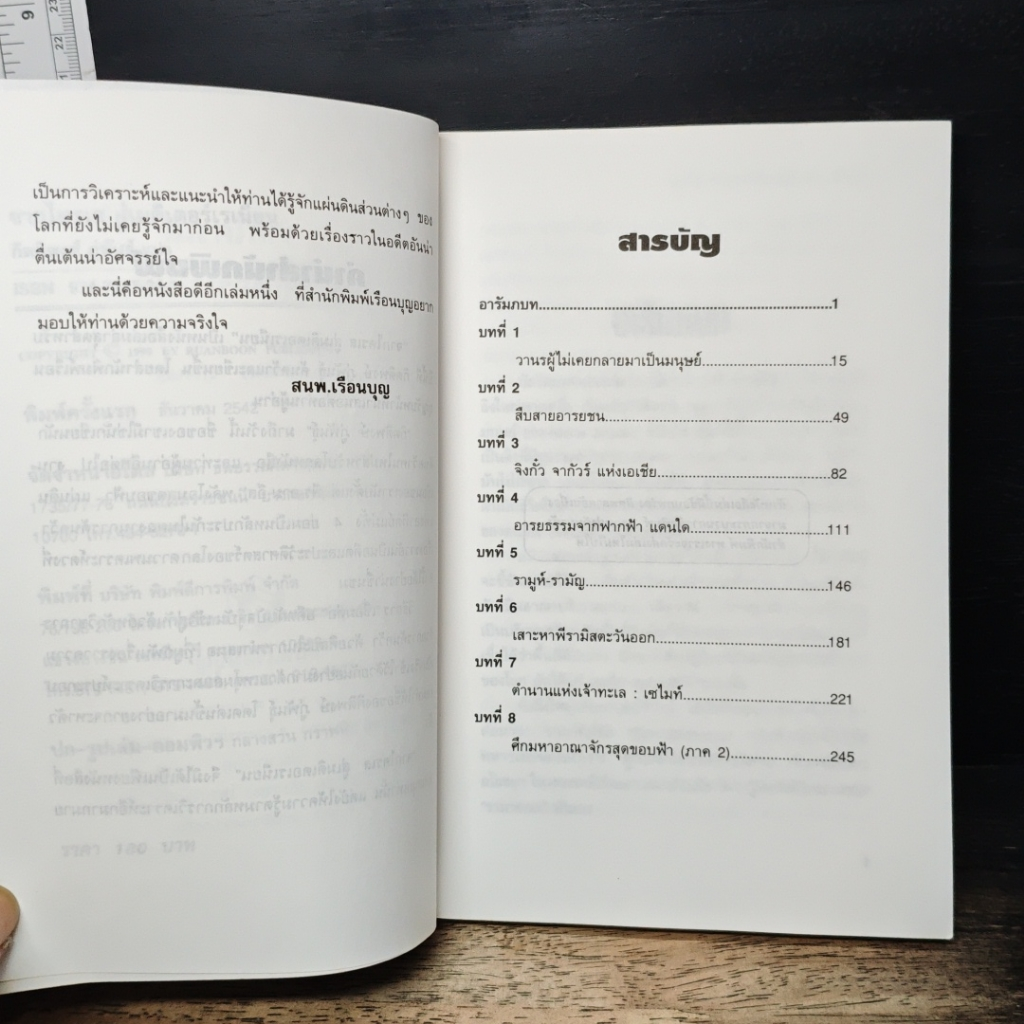 9
23
22
21
เป็นการวิเคราะห์และแนะนำให้ท่านได้รู้จักแผ่นดินส่วนต่างๆ ของ
โลกที่ยังไม่เคยรู้จักมาก่อน พร้อมด้วยเรื่องราวในอดีตอันน่า
ตื่นเต้นน่าอัศจรรย์ใจ
และนี่คือหนังสือดีอีกเล่มหนึ่ง ที่สำนักพิมพ์เรือนบุญอยาก
มอบให้ท่านด้วยความจริงใจ
สนพ.เรือนบุญ
สารบัญ
อารัมภบท........................................................................1
บทที่ 1
วานรผู้ไม่เคยกลายมาเป็นมนุษย์................................15
บทที่ 2
สืบสายอารยชน........................................................49
บทที่ 3
จิงกั๋ว จากัวร์ แห่งเอเชีย...........................................82
บทที่ 4
อารยธรรมจากฟากฟ้า แดนใด..................................111
บทที่ 5
รามูห์-รามัญ............................................................146
บทที่ 6
เสาะหาพีรามิสตะวันออก..........................................181
บทที่ 7
ตำนานแห่งเจ้าทะเล : เซไมท์...................................221
บทที่ 8
ศึกมหาอาณาจักรสุดขอบฟ้า (ภาค 2).......................245